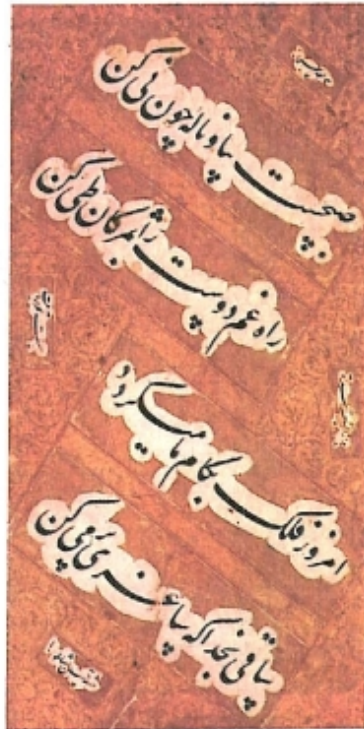 صحبت بیا و ناله چون نی کن
راه غم دوست را بمژگان طی کن
امروز فلک بکام ما میگردد
ساقی بخدا که ساغری پر می کن